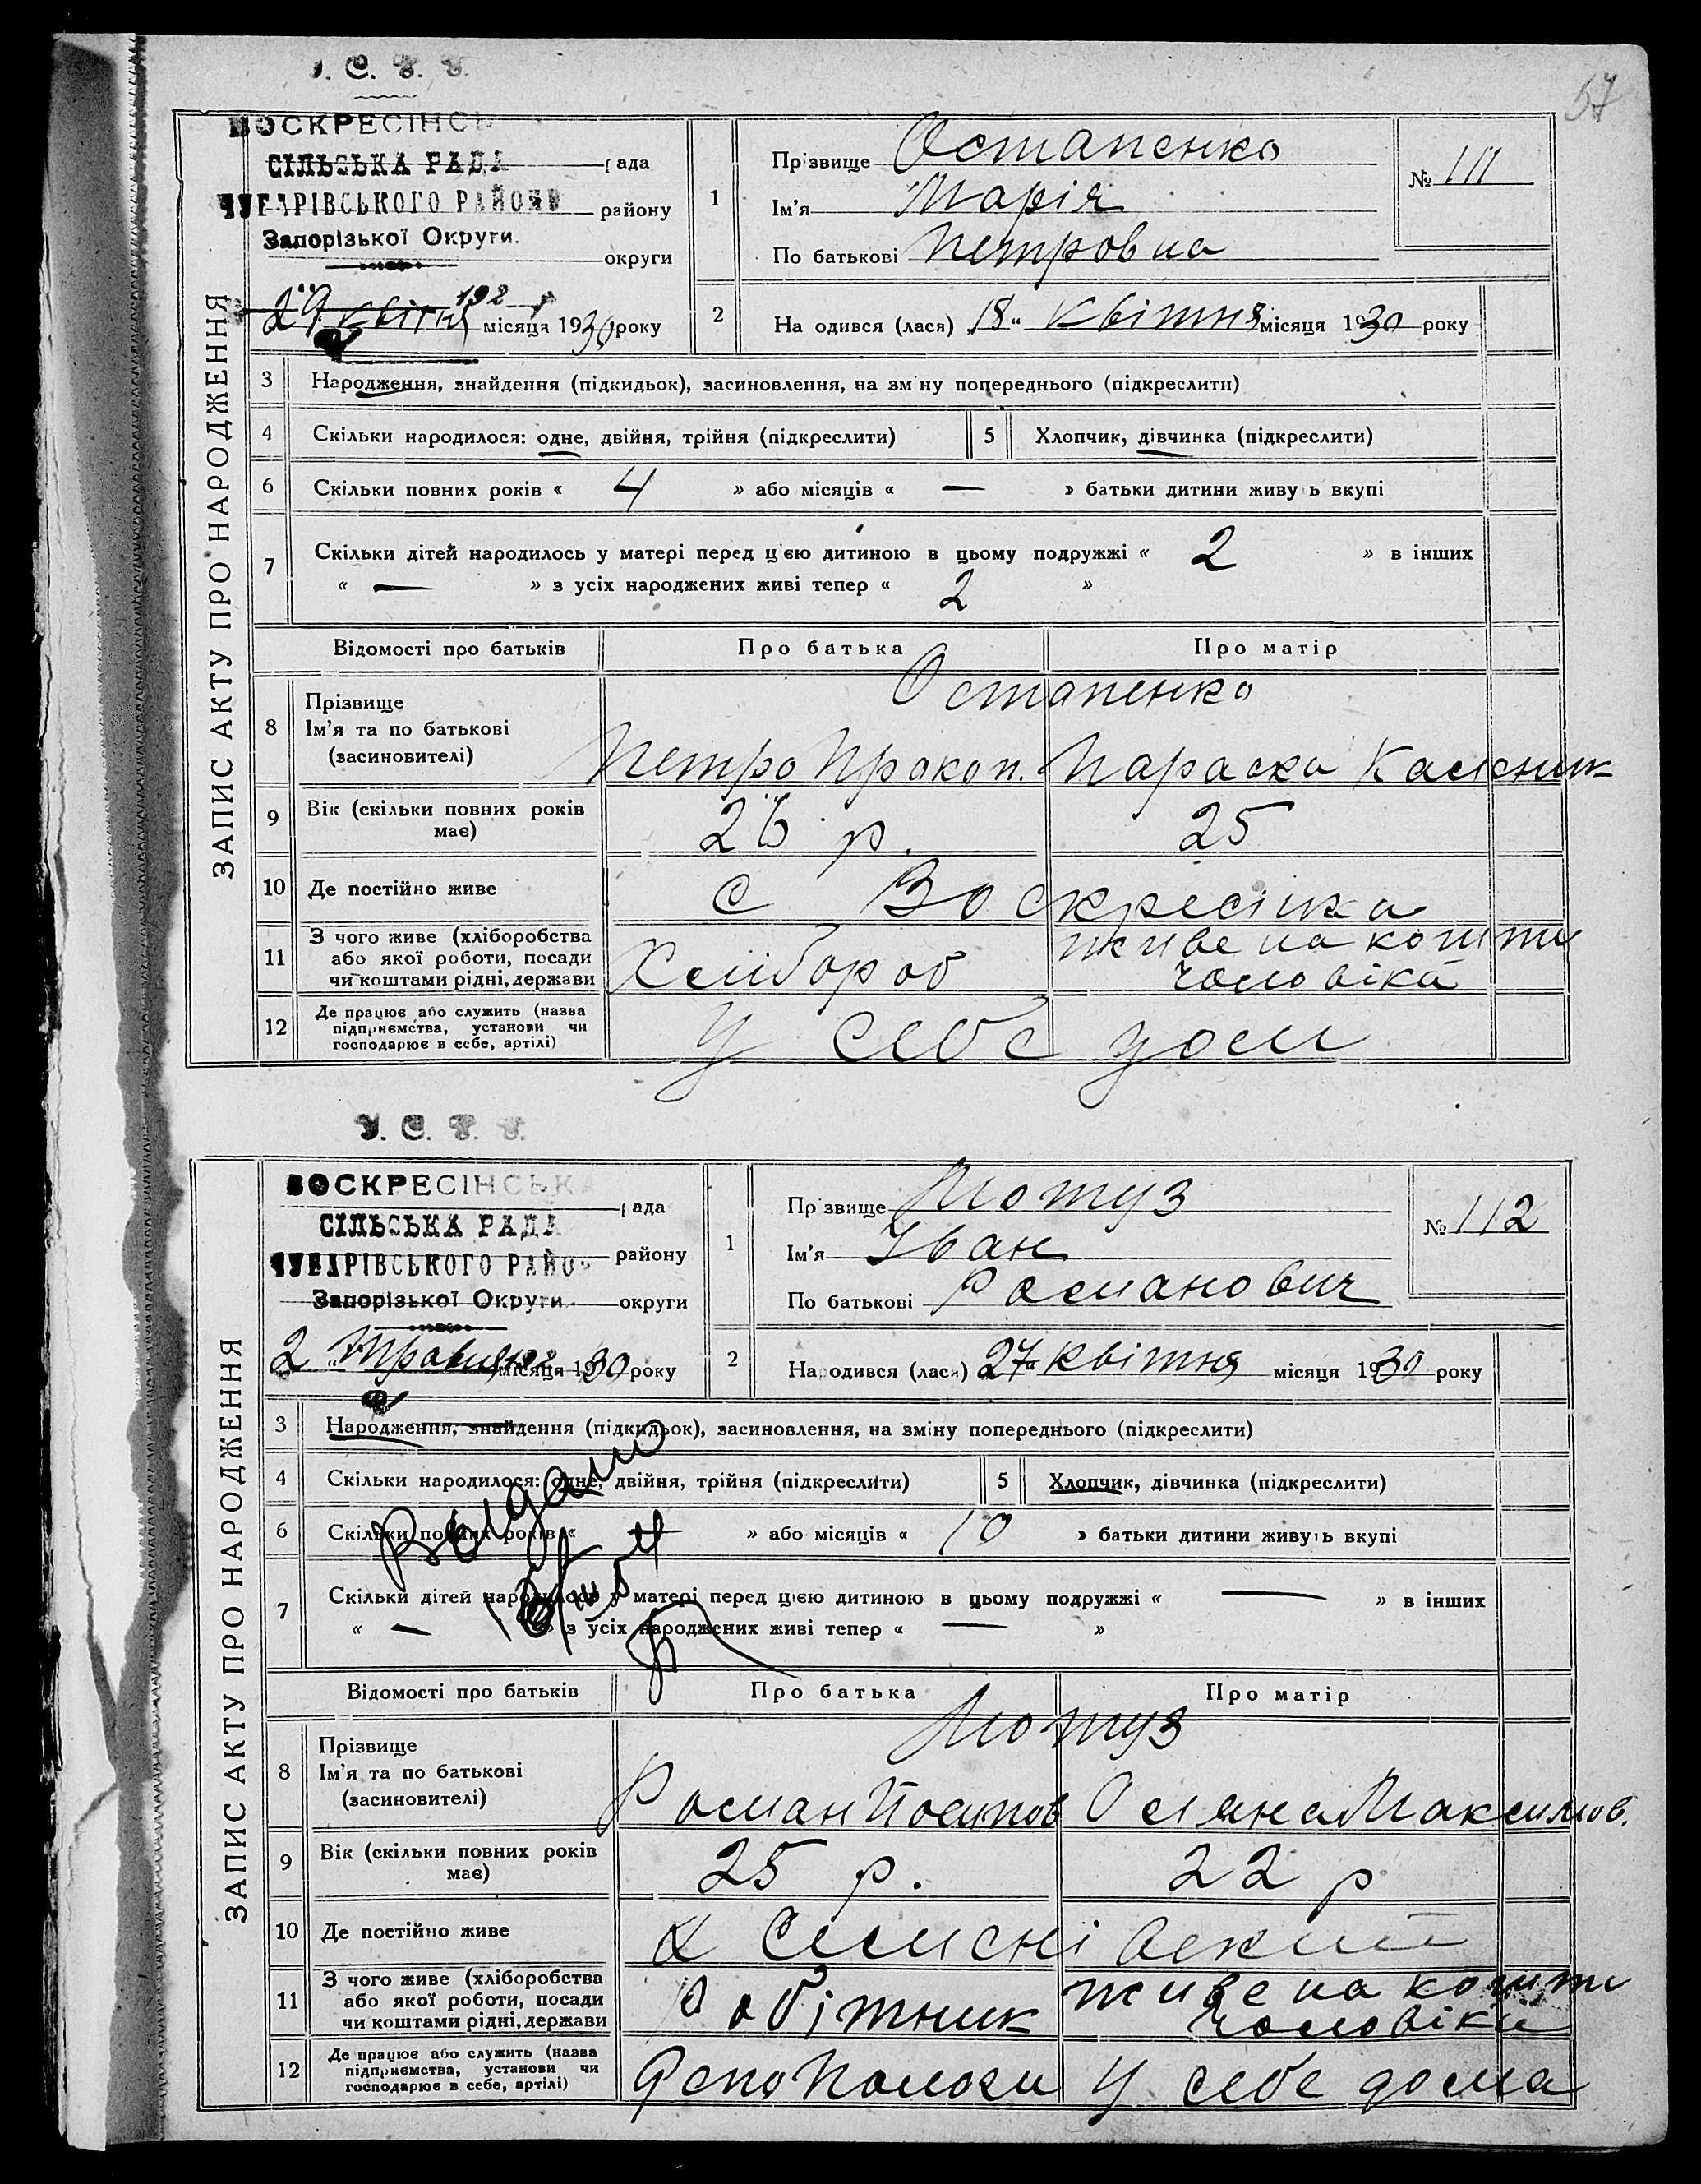 57
У. С. Р. Р.
ВОСКРЕСІНСЬ
СІЛЬСЬКА РАДА рада
ЧУБАРІВСЬКОГО РАЙОНУ району
Запорізької Округи.
округи
29 квітня 192 місяця 1930 року
ЗАПИС АКТУ ПРО НАРОДЖЕННЯ
1
Прізвище Остапенко
Ім'я Марія
По батькові Петровна
№ 111
2 Народився (лася) 18 " Квітня місяця 1930 року
3 Народження, знайдення (підкидьок), засиновлення, на зміну попереднього (підкреслити)
4 Скільки народилося: одне, двійня, трійня (підкреслити) 5 Хлопчик, дівчинка (підкреслити)
6 Скільки повних років « 4 » або місяців « — » батьки дитини живуть вкупі
7 Скільки дітей народилось у матері перед цією дитиною в цьому подружжі « 2 » в інших
« — » з усіх народжених живі тепер « 2 »
Відомості про батьків Про батька Про матір
8 Прізвище Остапенко
Ім'я та по батькові
(засиновителі) Петро Прокоп. Параска Каленик
9 Вік (скільки повних років
має) 26 р. 25
10 Де постійно живе с Воскресінка
11 З чого живе (хліборобства
або якої роботи, посади
чи коштами рідні, держави Хлібороб живе на кошти
чоловіка
12 Де працює або служить (назва
підприємства, установи чи
господарює в себе, артілі) У себе дом
У. С. Р. Р.
ВОСКРЕСІНСЬКА
рада
СІЛЬСЬКА РАДА
ЧУБАРІВСЬКОГО РАЙОН району
Запорізької Округи. округи
2 " Травня 192 місяця 1930 року
ЗАПИС АКТУ ПРО НАРОДЖЕННЯ
1
Прізвище Мотуз
Ім'я Іван
По батькові Романович
№ 112
2 Народився (лася) 27 " Квітня місяця 1930 року
3 Народження, знайдення (підкидьок), засиновлення, на зміну попереднього (підкреслити)
4 Скільки народилося: одне, двійня, трійня (підкреслити) 5 Хлопчик, дівчинка (підкреслити)
6 Скільки повних років « » або місяців « 10 » батьки дитини живуть вкупі
7 Скільки дітей народилось у матері перед цією дитиною в цьому подружжі « — » в інших
« — » з усіх народжених живі тепер « — »
Відомості про батьків Про батька Про матір
8 Прізвище Мотуз
Ім'я та по батькові
(засиновителі) Роман Йосипов Омяна Максимов.
9 Вік (скільки повних років
має) 25 р. 22 р
10 Де постійно живе
11 З чого живе (хліборобства
або якої роботи, посади
чи коштами рідні, держави Робітник живе на кошти
чоловіка
12 Де працює або служить (назва
підприємства, установи чи
господарює в себе, артілі) Депо Пологи У себе дома